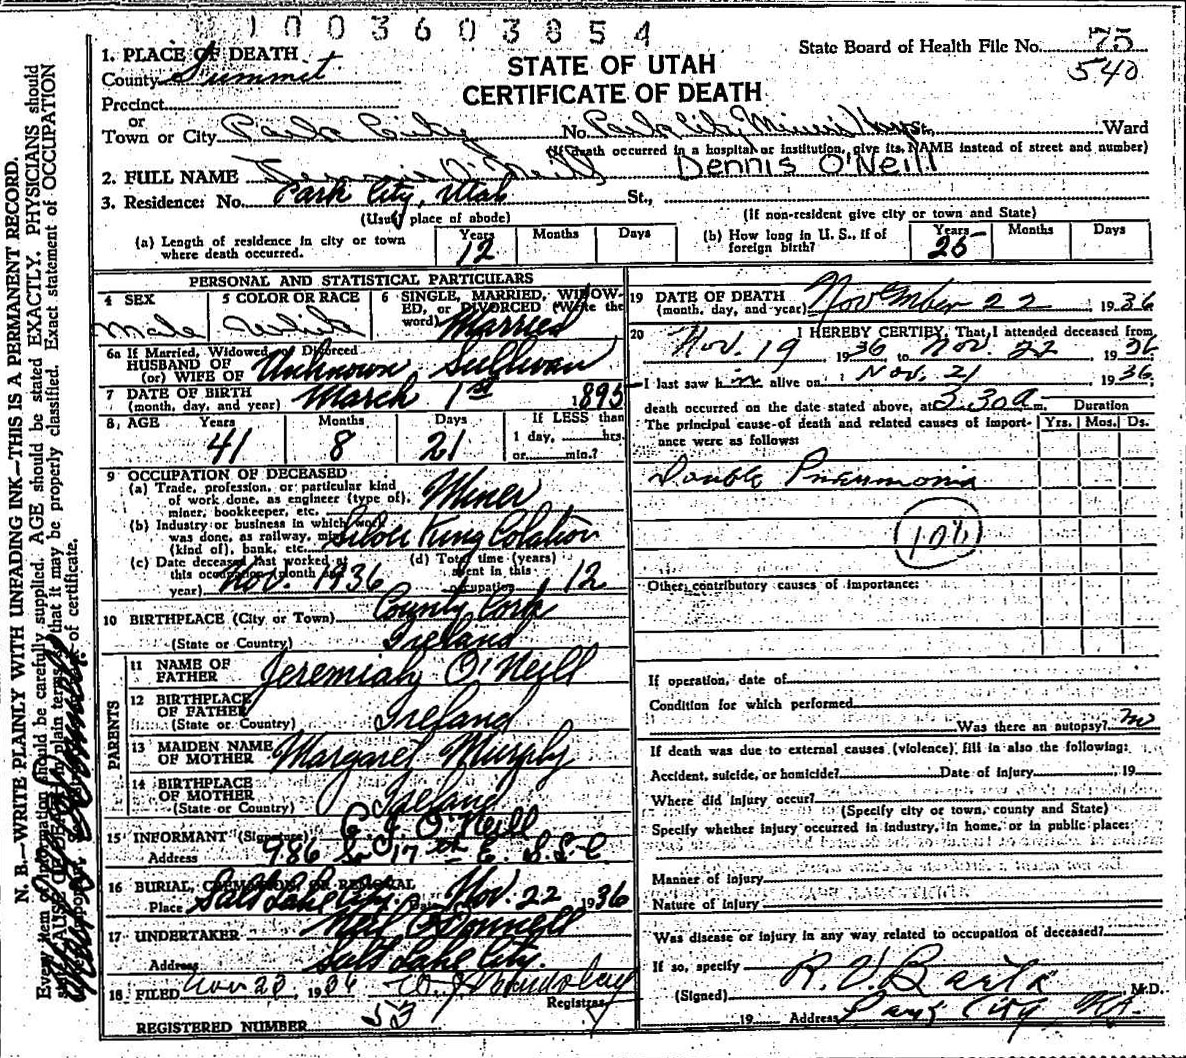 1003603854
State Board of Health File No. 75
540
1. PLACE OF DEATH
County Summit
STATE OF UTAH
CERTIFICATE OF DEATH
Precinct
or
Town or City Park City No. Park City Miners Hosp. St., Ward
(If death occurred in a hospital or institution, give its NAME instead of street and number)
2. FULL NAME Dennis O'Neill Dennis O'Neill
3. Residence: No. Park City, Utah St.,
(Usual place of abode) (If non-resident give city or town and State)
(a) Length of residence in city or town where death occurred. Years 12 Months Days
(b) How long in U. S., if of foreign birth? Years 25 Months Days
PERSONAL AND STATISTICAL PARTICULARS
4 SEX Male
5 COLOR OR RACE White
6 SINGLE, MARRIED, WIDOWED, or DIVORCED (Write the word) Married
6a If Married, Widowed or Divorced
HUSBAND OF
(or) WIFE OF Unknown Sullivan
7 DATE OF BIRTH
(month, day, and year) March 1st 1895
8. AGE Years 41 Months 8 Days 21
If LESS than
1 day, hrs.
or min.?
9 OCCUPATION OF DECEASED
(a) Trade, profession, or particular kind
of work done, as engineer (type of),
miner, bookkeeper, etc. Miner
(b) Industry or business in which work
was done, as railway, mine
(kind of), bank, etc. Silver King Colation
(c) Date deceased last worked at
this occupation (month and
year) Nov. 1936
(d) Total time (years)
spent in this
occupation 12
10 BIRTHPLACE (City or Town) County Cork
(State or Country) Ireland
PARENTS
11 NAME OF FATHER Jeremiah O'Neill
12 BIRTHPLACE OF FATHER
(State or Country) Ireland
13 MAIDEN NAME OF MOTHER Margaret Murphy
14 BIRTHPLACE OF MOTHER
(State or Country) Ireland
15 INFORMANT (Signature) C. J. O'Neill
Address 986 So 17th E. S.L.C
16 BURIAL, CREMATION, OR REMOVAL
Place Salt Lake City. Date Nov. 22 1936
17 UNDERTAKER Neil O'Donnell
Address Salt Lake City.
18 FILED Nov 23, 1936
Registrar
REGISTERED NUMBER 53
19 DATE OF DEATH
(month, day, and year) November 22 1936
20 I HEREBY CERTIFY, That I attended deceased from
Nov. 19 1936 to Nov. 22 1936
I last saw him alive on Nov. 21 1936
death occurred on the date stated above, at 3.30a m. Duration
The principal cause of death and related causes of importance were as follows: Yrs. Mos. Ds.
Double Pneumonia
Other contributory causes of importance:
If operation, date of
Condition for which performed
Was there an autopsy? no
If death was due to external causes (violence) fill in also the following:
Accident, suicide, or homicide? Date of injury 19
Where did injury occur?
(Specify city or town, county and State)
Specify whether injury occurred in industry, in home, or in public place:
Manner of injury
Nature of injury
Was disease or injury in any way related to occupation of deceased?
If so, specify
(Signed) M.D.
19 Address Park City Ut.
N. B.—WRITE PLAINLY WITH UNFADING INK—THIS IS A PERMANENT RECORD.
Every item of information should be carefully supplied. AGE should be stated EXACTLY. PHYSICIANS should
state CAUSE OF DEATH in plain terms, so that it may be properly classified. Exact statement of OCCUPATION
of certificate.